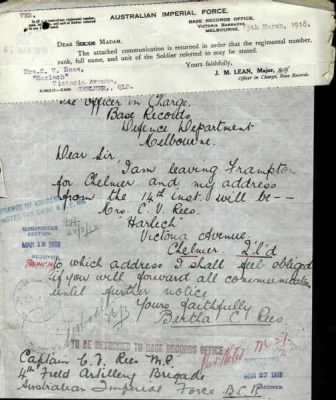 AUSTRALIAN IMPERIAL FORCE.
BASE RECORDS OFFICE,
VICTORIA BARRACKS,
MELBOURNE, 15th March, 1918.
DEAR MADAM,
The attached communication is returned in order that the regimental number,
rank, full name, and unit of the Soldier referred to may be stated.
Yours faithfully,
J. M. LEAN, Major,
Officer in Charge, Base Records.
Mrs. C. V. Rees,
"Harlech"
Victoria Avenue,
CHELMER, QLD.
The Officer in Charge.
Base Records
Defence Department
Melbourne.
Dear Sir,
I am leaving Frampton
for Chelmer and my address
from the 14th inst. will be --
Mrs. C. V. Rees.
'Harlech'
Victoria Avenue.
Chelmer. Q'l'd
to which address I shall feel obliged
if you will forward all communication
until further notice
Yours faithfully
Bertha C. Rees
TO BE RETURNED TO BASE RECORDS OFFICE
MAR 27 1918
Captain C. V. Rees M.C.
4th Field Artillery Brigade
Australian Imperial Force